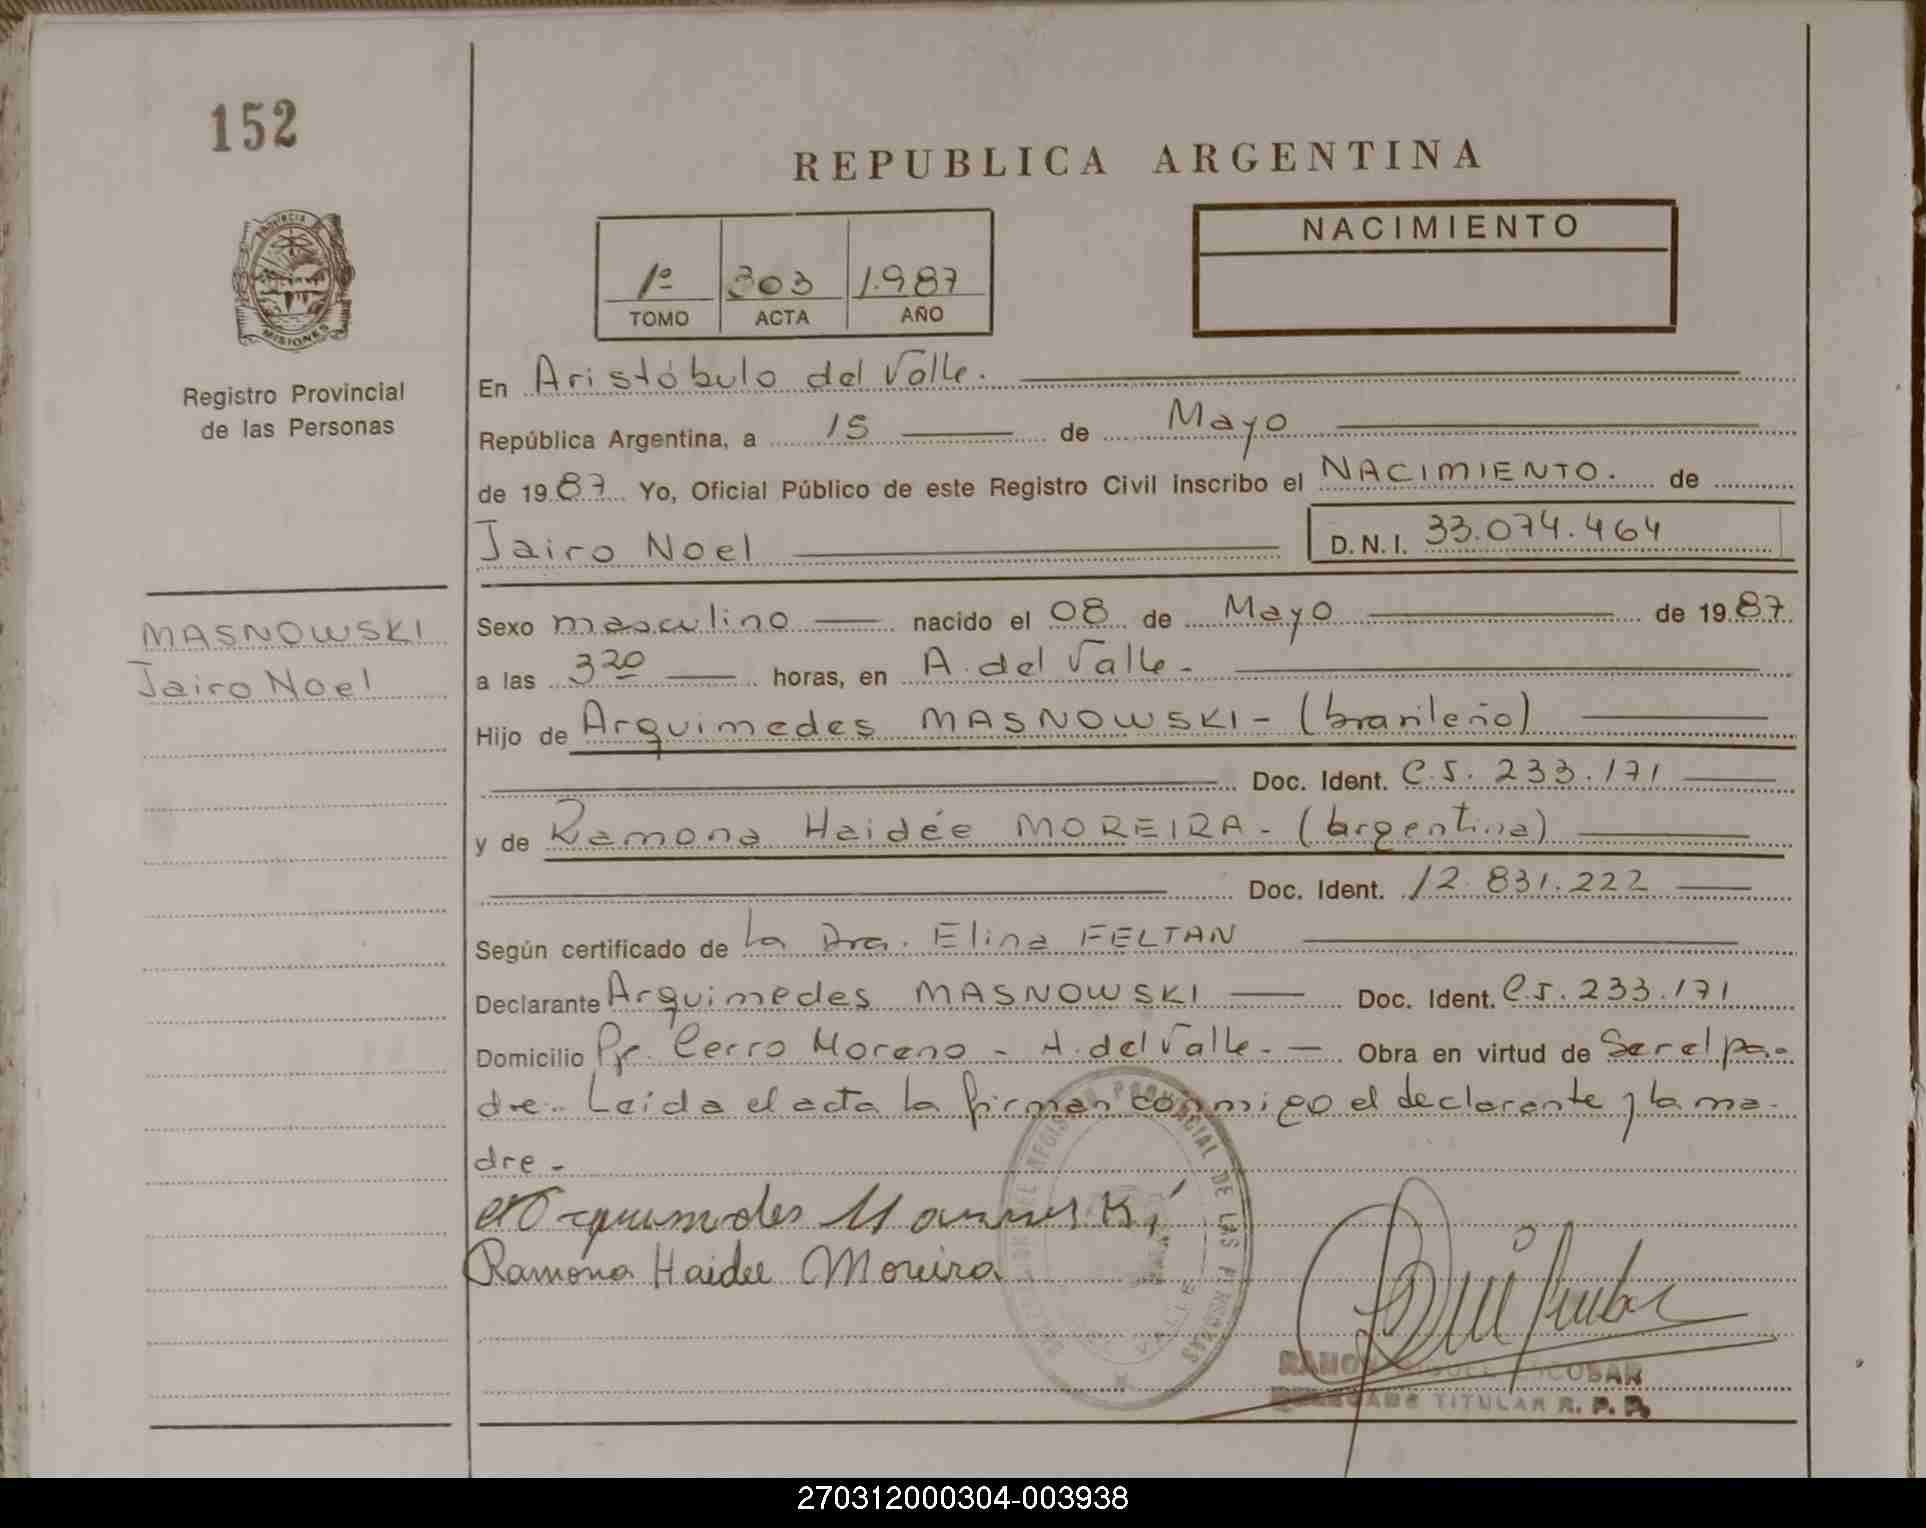 152
REPUBLICA ARGENTINA
PROVINCIA
MISIONES
Registro Provincial
de las Personas
1º 303 1.987
TOMO ACTA AÑO
NACIMIENTO
En Aristóbulo del Valle.
República Argentina, a 15 de Mayo
de 1987 Yo, Oficial Público de este Registro Civil inscribo el NACIMIENTO. de
Jairo Noel D.N.I. 33.074.464
MASNOWSKI
Jairo Noel
Sexo masculino nacido el 08 de Mayo de 1987
a las 3 20 horas, en A. del Valle-
Hijo de Arquimedes MASNOWSKI - (brasileño)
Doc. Ident. C.I. 233.171
y de Ramona Haidée MOREIRA - (argentina)
Doc. Ident. 12.831.222
Según certificado de la Dra. Elina FELTAN
Declarante Arquimedes MASNOWSKI Doc. Ident. C.I. 233.171
Domicilio Pje. Cerro Moreno - A. del Valle - Obra en virtud de Ser el pa-
dre.. Leida el acta la firman conmigo el declarante y la ma-
dre -
Ramona Haidee Moreira
REGISTRO PROVINCIAL DE LAS PERSONAS
RAMON MIGUEL ESCOBAR
DELEGADO TITULAR R. P. P.
270312000304-003938